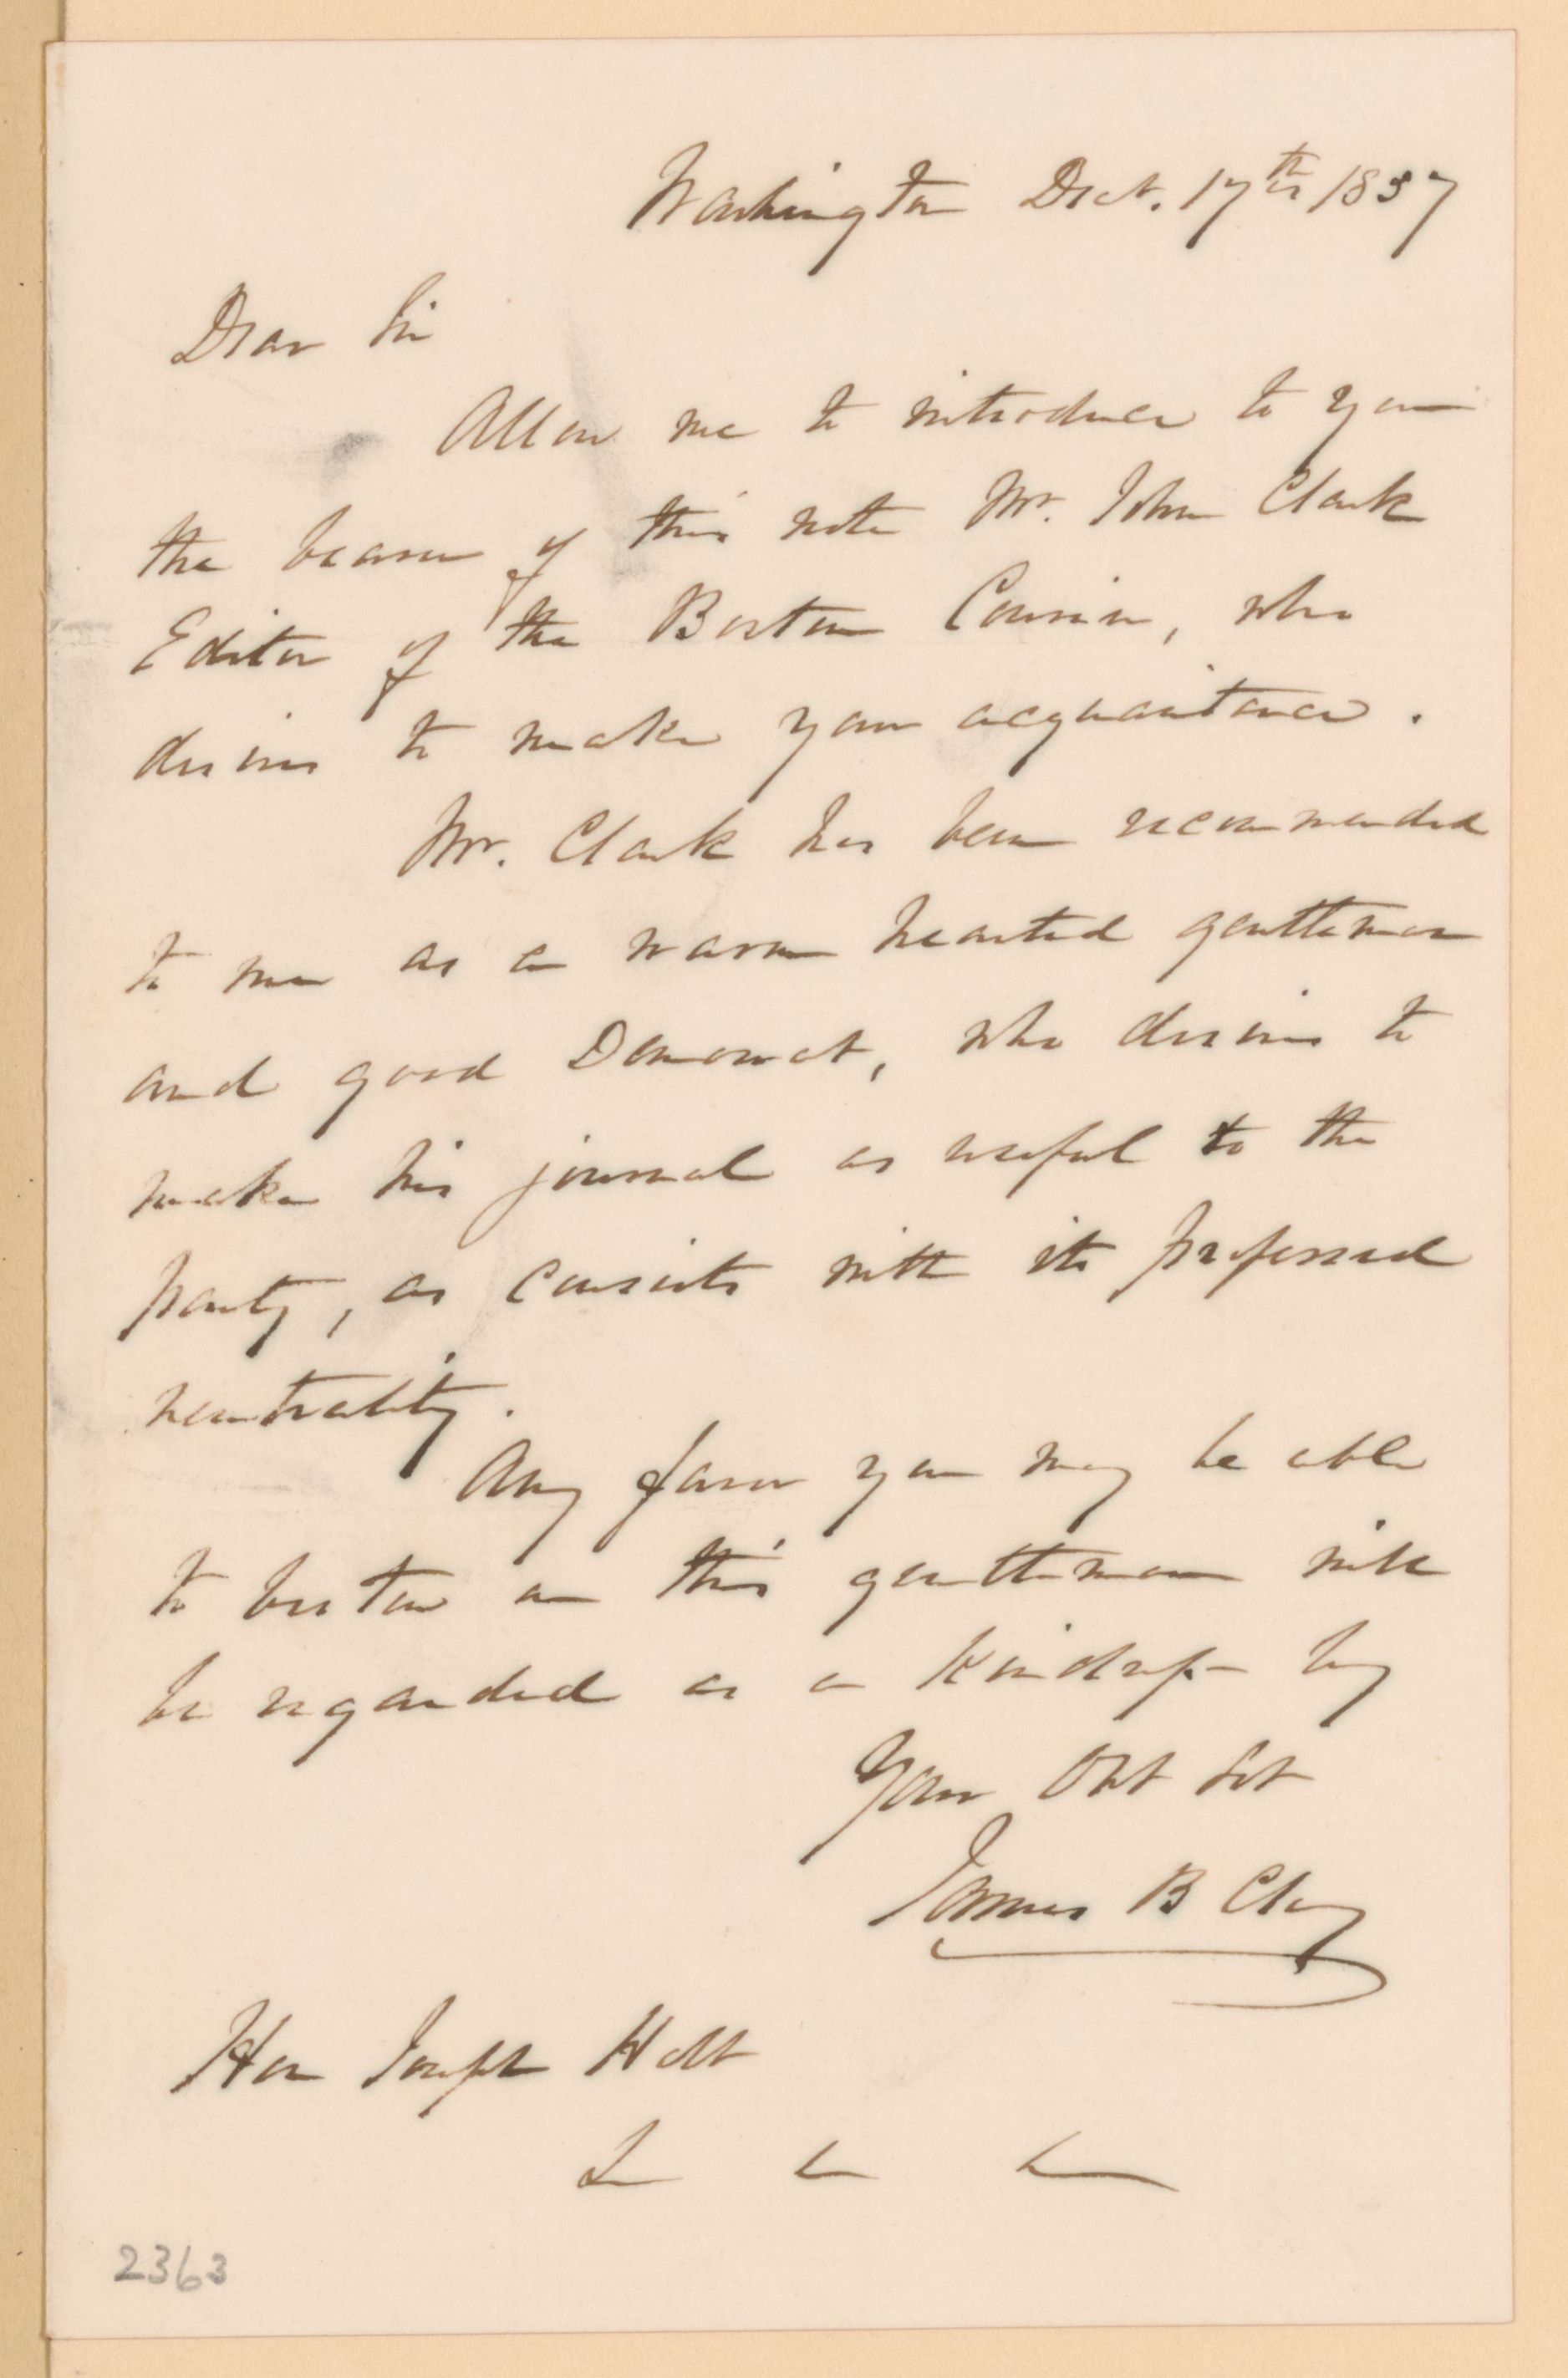 Washington Dect. 17th 1857
Dear Sir
Allow me to introduce to you
the bearer of this note Mr. John Clark
Editor of the Boston Courier, who
desires to make your acquaintance.
Mr. Clark has been recommended
to me as a warm hearted gentleman
and good Democrat, who desires to
make his journal as useful to the
party, as consists with its professed
neutrality.
Any favor you may be able
to bestow on this gentleman will
be regarded as a kindness by
Your Obt Svt
James B Clay
Hon Joseph Holt
2363